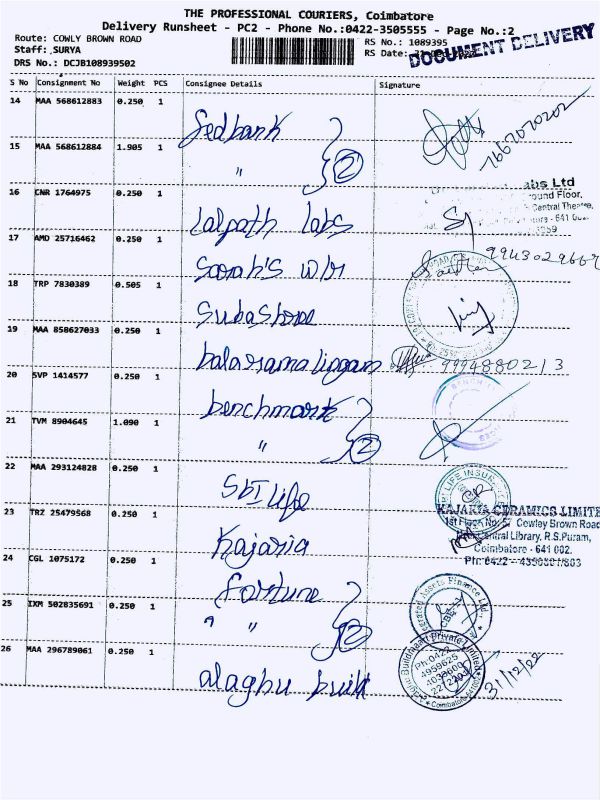 THE PROFESSIONAL COURIERS, Coimbatore
Delivery Runsheet - PC2 - Phone No.:0422-3505555 - Page No.:2
Route: COWLY BROWN ROAD
RS No.: 1089395
Staff: SURYA
RS Date:
DOCUMENT DELIVERY
DRS No.: DCJB108939502
S No Consignment No Weight PCS Consignee Details Signature
14 MAA 568612883 0.250 1 fedbank
7662020202
15 MAA 568612884 1.905 1 " 2
16 CNR 1764975 0.250 1 lalpath labs
abs Ltd
ound Floor,
Central Theatre,
17 AMD 25716462 0.250 1 Sarah's
9943029667
18 TRP 7830389 0.505 1 Subashree
19 MAA 858627033 0.250 1 balaramalingam 9994880213
20 SVP 1414577 0.250 1 benchmark
21 TVM 8904645 1.090 1 " 2
22 MAA 293124828 0.250 1 SbI life
23 TRZ 25479568 0.250 1 Kajaria
KAJARIA CERAMICS LIMITE
1st Floor No: 57 Cowley Brown Road
Central Library, R.S.Puram,
Coimbatore - 641 002.
24 CGL 1075172 0.250 1 fortune
25 IXM 502835691 0.250 1 " " 2
26 MAA 296789061 0.250 1 alaghu build
Buildmaart Private Limited
Ph:0422
4959625
31/12/22